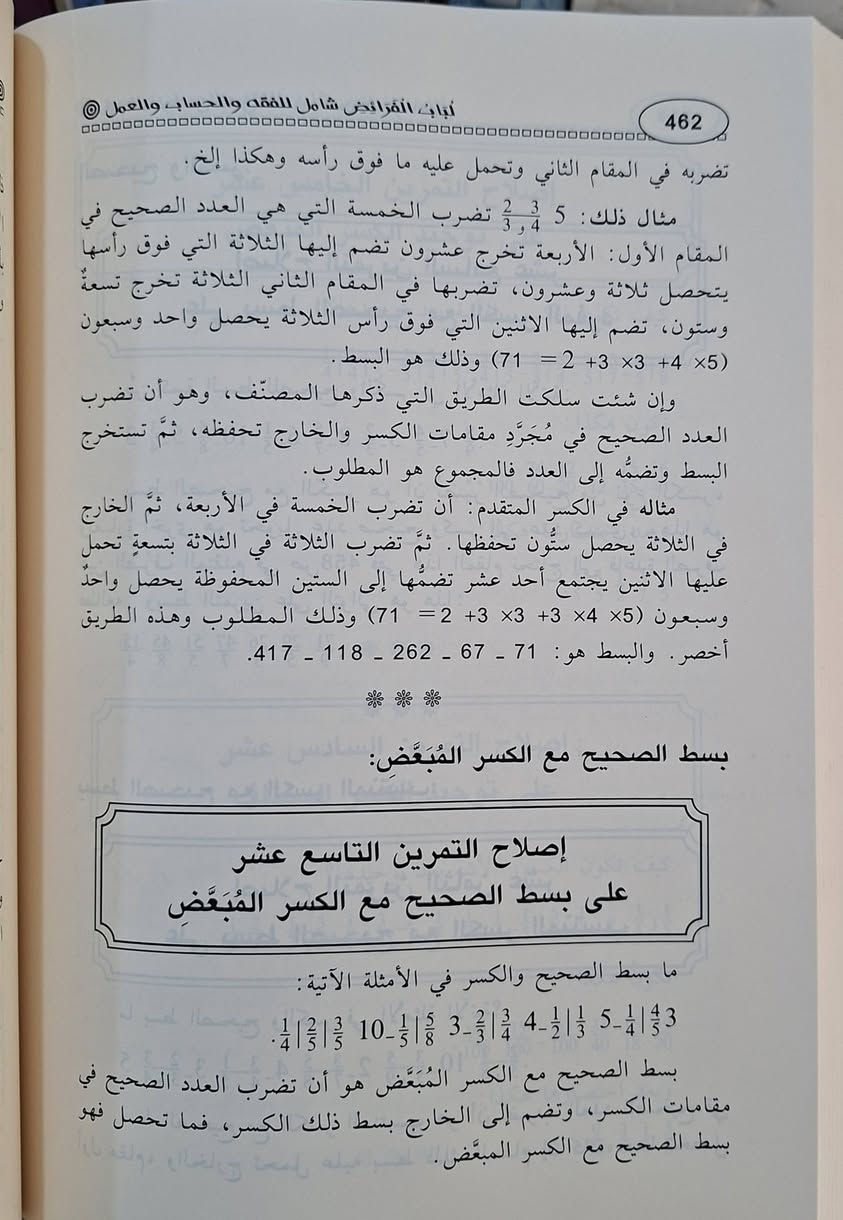 462
لُبَابُ الْفَرَائِضِ شامل للفقه والحساب والعمل
تضربه في المقام الثاني وتحمل عليه ما فوق رأسه وهكذا إلخ.
مثال ذلك: 5 3/4 و 2/3 تضرب الخمسة التي هي العدد الصحيح في
المقام الأول: الأربعة تخرج عشرون تضم إليها الثلاثة التي فوق رأسها
يتحصل ثلاثة وعشرون، تضربها في المقام الثاني الثلاثة تخرج تسعةٌ
وستون، تضم إليها الاثنين التي فوق رأس الثلاثة يحصل واحد وسبعون
(5× 4+ 3× 3+ 2= 71) وذلك هو البسط.
وإن شئت سلكت الطريق التي ذكرها المصنّف، وهو أن تضرب
العدد الصحيح في مُجَرَّدِ مقامات الكسر والخارج تحفظه، ثمَّ تستخرج
البسط وتضمُّه إلى العدد فالمجموع هو المطلوب.
مثاله في الكسر المتقدم: أن تضرب الخمسة في الأربعة، ثمَّ الخارج
في الثلاثة يحصل ستُّون تحفظها. ثمَّ تضرب الثلاثة في الثلاثة بتسعةٍ تحمل
عليها الاثنين يجتمع أحد عشر تضمُّها إلى الستين المحفوظة يحصل واحدٌ
وسبعون (5× 4× 3+ 3× 3+ 2= 71) وذلك المطلوب وهذه الطريق
أخصر. والبسط هو: 71 - 67 - 262 - 118 - 417.
بسط الصحيح مع الكسر المُبَعَّضِ:
إصلاح التمرين التاسع عشر
على بسط الصحيح مع الكسر المُبَعَّضِ
ما بسط الصحيح والكسر في الأمثلة الآتية:
3 4/5|1/4-5 1/3|1/2-4 3/4|2/3-3 5/8|1/5-10 3/5|2/5|1/4.
بسط الصحيح مع الكسر المُبَعَّض هو أن تضرب العدد الصحيح في
مقامات الكسر، وتضم إلى الخارج بسط ذلك الكسر، فما تحصل فهو
بسط الصحيح مع الكسر المبعَّض.